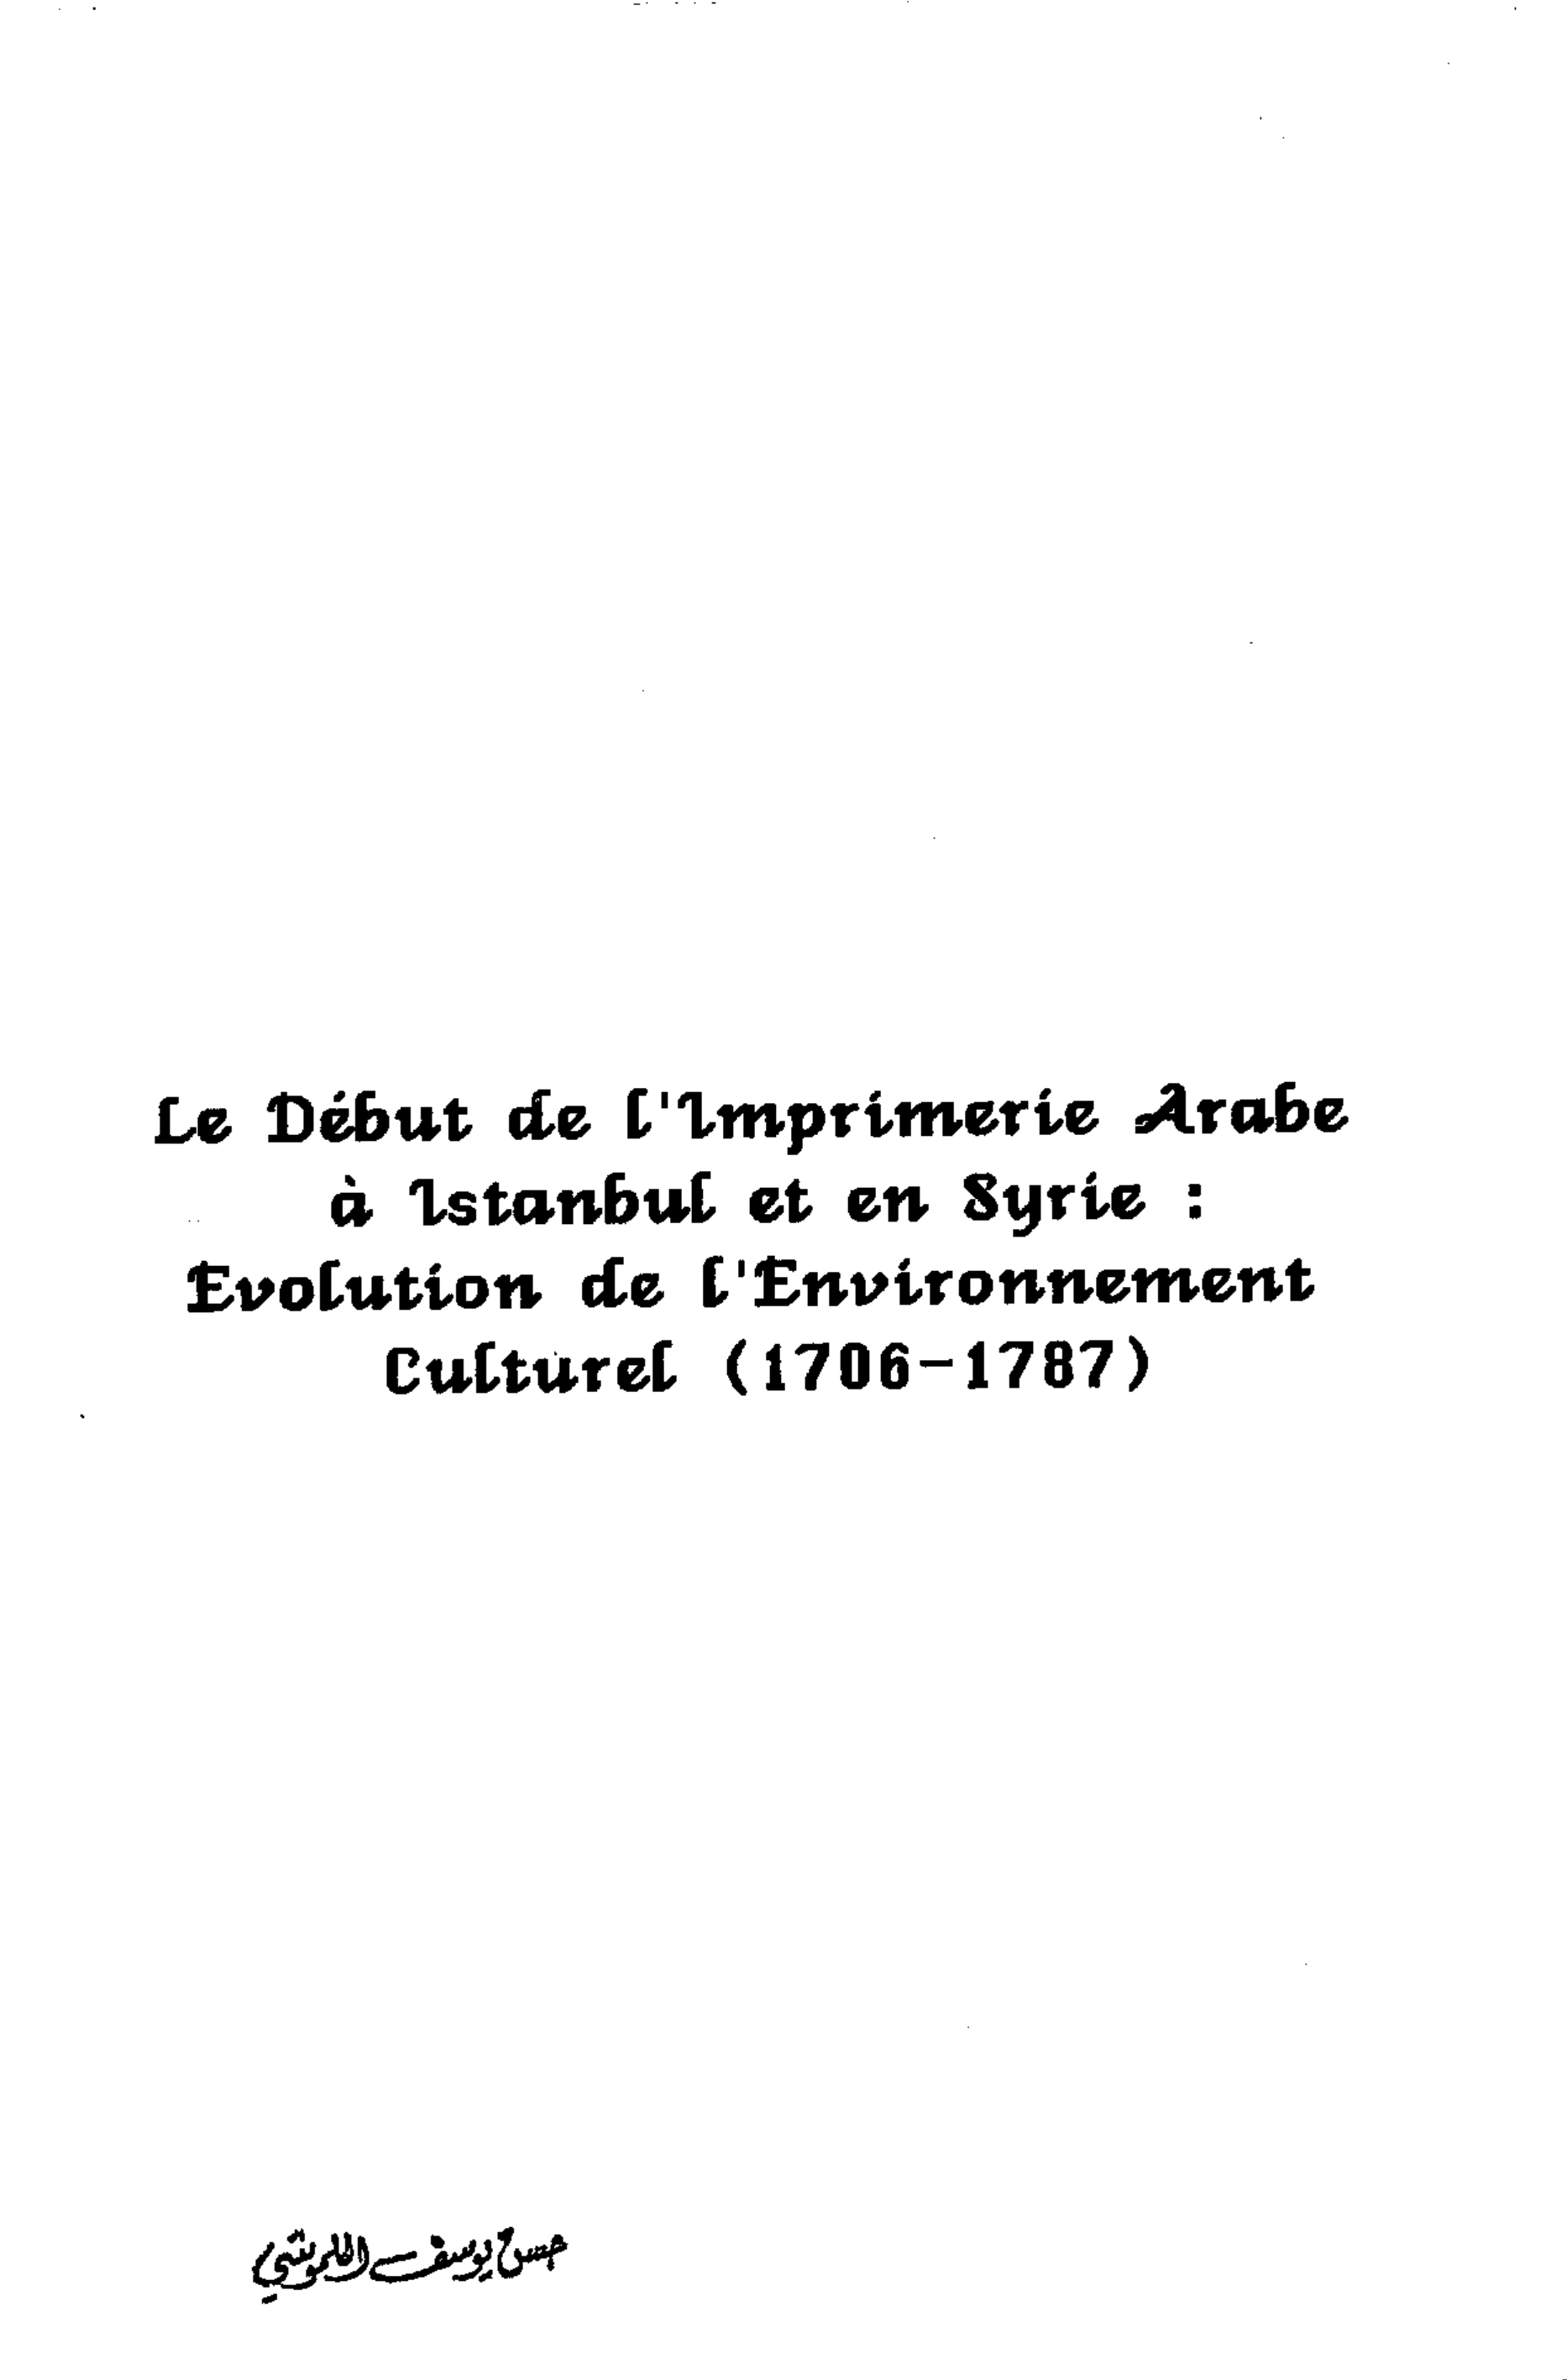 Le Début de l'Imprimerie Arabe
à Istanbul et en Syrie :
Evolution de l'Environnement
Culturel (1706-1787)
يوسف